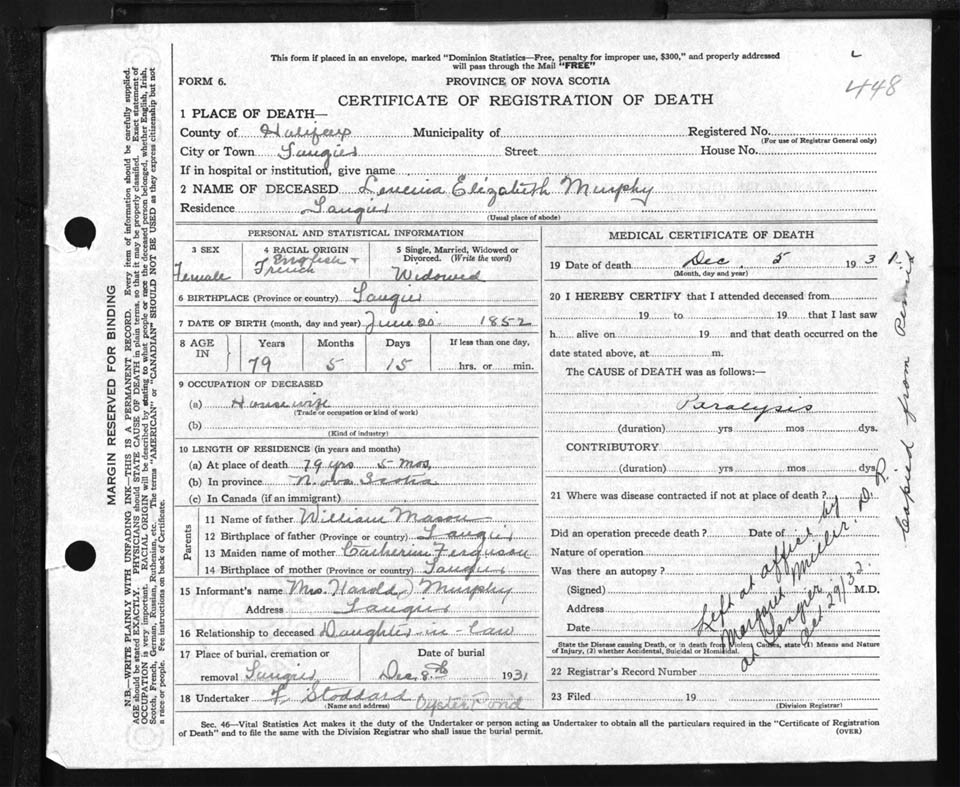 This form if placed in an envelope, marked "Dominion Statistics—Free, penalty for improper use, $300," and properly addressed
will pass through the Mail "FREE"
448
FORM 6.
PROVINCE OF NOVA SCOTIA
CERTIFICATE OF REGISTRATION OF DEATH
1 PLACE OF DEATH—
County of Halifax Municipality of Registered No.
(For use of Registrar General only)
City or Town Tangier Street House No.
If in hospital or institution, give name
2 NAME OF DECEASED Elizabeth Murphy
Residence Tangier
(Usual place of abode)
PERSONAL AND STATISTICAL INFORMATION
3 SEX
Female
4 RACIAL ORIGIN
English +
French
5 Single, Married, Widowed or
Divorced. (Write the word)
Widowed
6 BIRTHPLACE (Province or country) Tangier
7 DATE OF BIRTH (month, day and year) June 20 1852
8 AGE IN
Years Months Days If less than one day,
79 5 15 hrs. or min.
9 OCCUPATION OF DECEASED
(a) Housewife
(Trade or occupation or kind of work)
(b)
(Kind of industry)
10 LENGTH OF RESIDENCE (in years and months)
(a) At place of death 79 yrs 5 mos.
(b) In province Nova Scotia
(c) In Canada (if an immigrant)
Parents
11 Name of father William Mason
12 Birthplace of father (Province or country) Tangier
13 Maiden name of mother Catherine Ferguson
14 Birthplace of mother (Province or country) Tangier
15 Informant's name Mrs. Harold Murphy
Address Tangier
16 Relationship to deceased Daughter-in-law
17 Place of burial, cremation or Date of burial
removal Tangier Dec. 8th 1931
18 Undertaker F. Stoddard Oyster Pond
(Name and address)
MEDICAL CERTIFICATE OF DEATH
19 Date of death Dec. 5 1931
(Month, day and year)
20 I HEREBY CERTIFY that I attended deceased from
19 to 19 that I last saw
h alive on 19 and that death occurred on the
date stated above, at m.
The CAUSE of DEATH was as follows:—
Paralysis
(duration) yrs mos dys.
CONTRIBUTORY
(duration) yrs mos dys.
21 Where was disease contracted if not at place of death?
Did an operation precede death? Date of
Nature of operation
Was there an autopsy?
(Signed) M.D.
Address
Date
State the Disease causing Death, or in death from Violent Causes, state (1) Means and Nature
of Injury, (2) whether Accidental, Suicidal or Homicidal.
22 Registrar's Record Number
23 Filed 19
(Division Registrar)
Left at office by
Margaret Miller D.R.
at Tangier
Oct 29/32.
Copied from Pencil
Sec. 46—Vital Statistics Act makes it the duty of the Undertaker or person acting as Undertaker to obtain all the particulars required in the "Certificate of Registration
of Death" and to file the same with the Division Registrar who shall issue the burial permit.
(OVER)
MARGIN RESERVED FOR BINDING
N.B.—WRITE PLAINLY WITH UNFADING INK—THIS IS A PERMANENT RECORD. Every item of information should be carefully supplied.
AGE should be stated EXACTLY. PHYSICIANS should STATE CAUSE OF DEATH in plain terms, so that it may be properly classified. Exact statement of
OCCUPATION is very important. RACIAL ORIGIN will be described by stating to what people or race the deceased person belonged, whether English, Irish,
Scotch, French, German, Russian, Ruthenian, etc. The terms "AMERICAN" or "CANADIAN" SHOULD NOT BE USED as they express citizenship but not
a race or people. Fee instructions on back of Certificate.